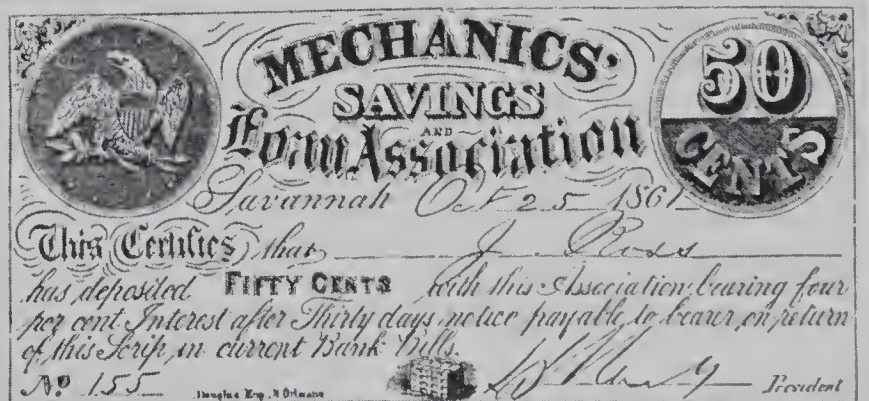 MECHANICS'
SAVINGS
AND
Loan Association
50
CENTS
Savannah Oct 25 1861
This Certifies that J Ross
has deposited FIFTY CENTS with this Association, bearing four
per cent Interest after Thirty days notice payable to bearer, on return
of this Scrip, in current Bank Bills.
No 155
Douglas Eng. N Orleans
President